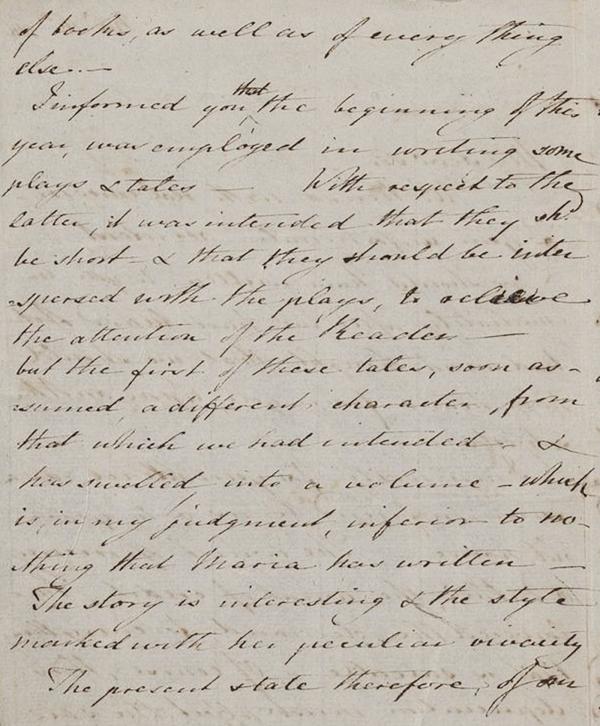 of books, as well as of every thing
else. —
I informed you that the beginning of this
year, was employed in writing some
plays & tales — With respect to the
latter, it was intended that they shd.
be short & that they should be inter
-spersed with the plays, to relieve
the attention of the Reader —
but the first of these tales, soon as-
-sumed, a different character, from
that which we had intended - &
has swelled into a volume - which
is, in my judgment, inferior to no-
-thing that Maria has written —
The story is interesting & the style
marked with her peculiar vivacity
The present state therefore, of our